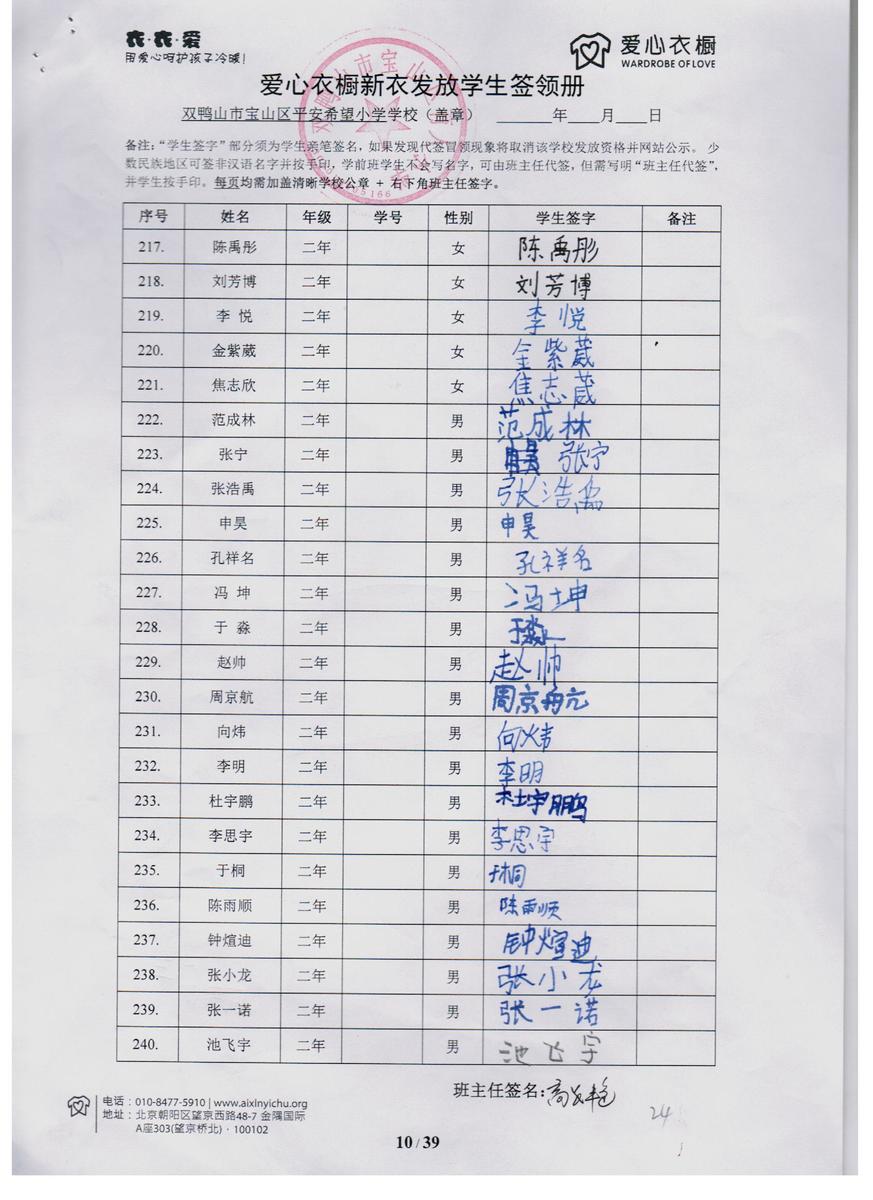 衣·衣·爱
用爱心呵护孩子冷暖！
爱心衣橱
WARDROBE OF LOVE
爱心衣橱新衣发放学生签领册
双鸭山市宝山区平安希望小学学校（盖章） ______年____月____日
备注：“学生签字”部分须为学生亲笔签名，如果发现代签冒领现象将取消该学校发放资格并网站公示。 少
数民族地区可签非汉语名字并按手印，学前班学生不会写名字，可由班主任代签，但需写明“班主任代签”，
并学生按手印。每页均需加盖清晰学校公章 + 右下角班主任签字。
序号 姓名 年级 学号 性别 学生签字 备注
217. 陈禹彤 二年 女 陈禹彤
218. 刘芳博 二年 女 刘芳博
219. 李 悦 二年 女 李悦
220. 金紫葳 二年 女 金紫葳
221. 焦志欣 二年 女 焦志葳
222. 范成林 二年 男 范成林
223. 张宁 二年 男 张宁
224. 张浩禹 二年 男 张浩禹
225. 申昊 二年 男 申昊
226. 孔祥名 二年 男 孔祥名
227. 冯 坤 二年 男 冯坤
228. 于 淼 二年 男 于淼
229. 赵帅 二年 男 赵帅
230. 周京航 二年 男 周京航
231. 向炜 二年 男 向炜
232. 李明 二年 男 李明
233. 杜宇鹏 二年 男 杜宇鹏
234. 李思宇 二年 男 李思宇
235. 于桐 二年 男 于桐
236. 陈雨顺 二年 男 陈雨顺
237. 钟煊迪 二年 男 钟煊迪
238. 张小龙 二年 男 张小龙
239. 张一诺 二年 男 张一诺
240. 池飞宇 二年 男 池飞宇
班主任签名：
电话：010-8477-5910 | www.aixinyichu.org
地址：北京朝阳区望京西路48-7 金隅国际
A座303(望京桥北)·100102
24
10 / 39